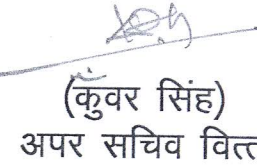 (कुंवर सिंह)
अपर सचिव वित्त